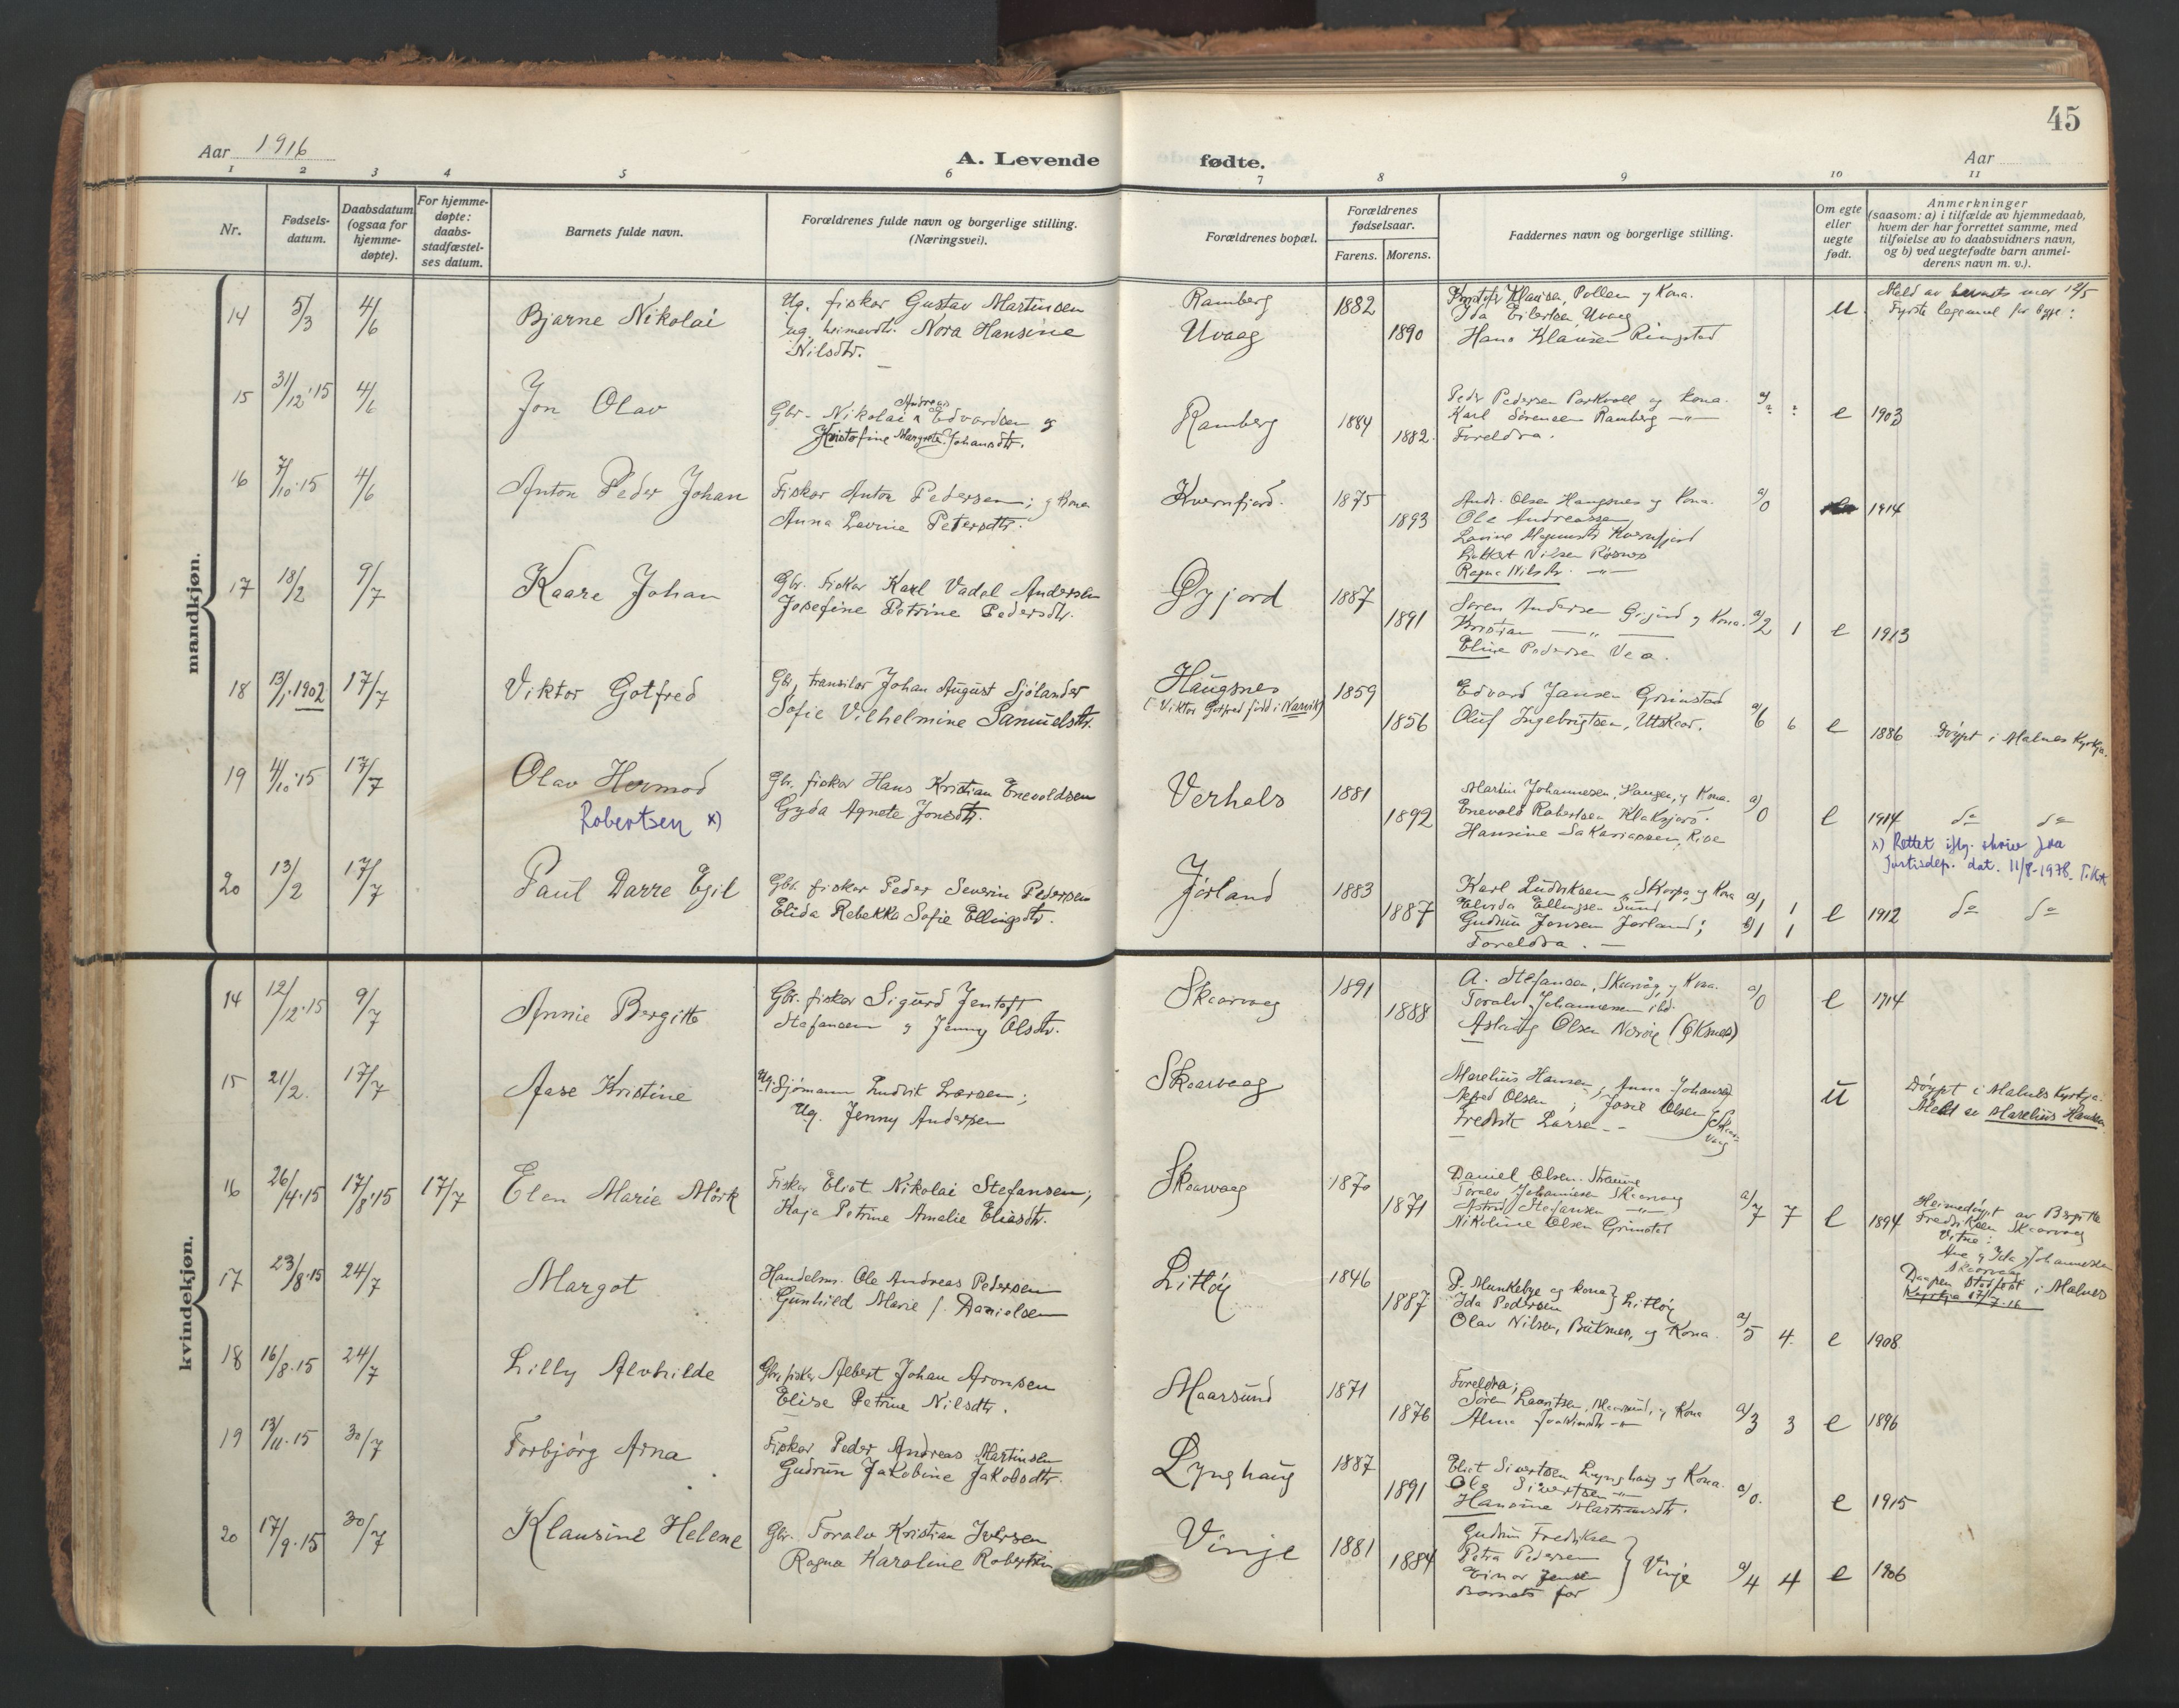 45
Aar 1916
A. Levende fødte.
Aar
1 2 3 4 5 6 7 8 9 10 11
Nr.
Fødsels-
datum.
Daabsdatum
(ogsaa for
hjemme-
døpte).
For hjemme-
døpte:
daabs-
stadfæstel-
ses datum.
Barnets fulde navn.
Forældrenes fulde navn og borgerlige stilling.
(Næringsvei).
Forældrenes bopæl.
Forældrenes
fødselsaar.
Farens. Morens.
Faddernes navn og borgerlige stilling.
Om egte
eller
uegte
født.
Anmerkninger
(saasom: a) i tilfælde av hjemmedaab,
hvem der har forrettet samme, med
tilføielse av to daabsvidners navn,
og b) ved uegtefødte barn anmel-
derens navn m. v.).
mandkjøn.
14 5/3 4/6 Bjarne Nikolai
Ug. fisker Gustav Martinsen
ug. heimevdtr. Nora Hansine
Nilsdtr.
Ramberg 1882
Uvaag 1890
Klausen, Pollen og Kona.
Ida Eilertsen Uvaag
Hans Klausen Ringstad
u.
Meld av barnets mor 12/5
15 31/12.15 4/6 Jon Olav
Gbr. Nikolai Andreas Edvardsen og
Kristofine Margrete Johansdtr.
Ramberg 1884 1882.
Peder Pedersen Parkvoll og kona.
Karl Sørensen Ramberg -"-
Foreldra.
e 1903
16 7/10.15 4/6 Anton Peder Johan
Fisker Anton Pedersen; og Kona
Anna Lovine Petersdtr.
Kvernfjord. 1875 1893
Andr. Olsen Haugsnes og Kona.
Ole Andreassen
Lovine Kvernfjord
Nilsen
Ragna Nilsdtr. -"-
a/0 1914
17 18/2 9/7 Kaare Johan
Gbr. Fisker Karl Vadel Andersen
Josefine Petrine Pedersdtr.
Øyjord 1887 1891
Søren Andersen og Kona.
Kristian -"-
Eline Pedersen Vea.
a/2 1 e 1913
18 13/1.1902 17/7 Viktor Gotfred
Gbr, transilør Johan August Sjölander
Sofie Vilhelmine Samuelsdtr.
Haugsnes
(Viktor Gotfred född i Narvik)
1859 1856
Edvard Jansen Grimstad
Oluf Ingebrigtsen, Utskor.
a/6 6 e 1886 Döypt i Malnes Kyrkja.
19 4/10.15 17/7 Olav Hermod
Robertsen x)
Gbr. fisker Hans Kristian Enevoldsen
Gyda Agnete Jonsdtr.
Verhals 1881 1892
Martin Johannesen, Haugen, og Kona.
Enevold Robertsen Klaksjord.
Hansine Sakariassen, Rise
a/0 e 1914 do do
x) Rettet iflg. skriv fra
Justisdep. dat. 11/8-1978.
20 13/2 17/7 Paul Darre Egil
Gbr. fisker Peder Severin Pedersen
Elida Rebekka Sofie Ellingsdtr.
Jörland 1883 1887
Karl Ludviksen, Skorpa, og Kona
Elvida Ellingsen Sund
Gudrun Jonsen Jorland;
Foreldra.
a/1 1
b/1 1
e 1912 do do
kvindekjøn.
14 12/12.15 9/7 Annie Bergitte
Gbr. fisker Sigurd Jentoft
Stefansen og Jenny Olsdtr.
Skaarvaag 1891 1888
A. Stefansen, Skarvåg, og Kona.
Toralv Johannesen ibd.
Aslaug Olsen (Øksnes)
a/0 e 1914
15 21/2. 17/7 Aase Kristine
Ug. Sjömann Ludvik Larsen;
Ug. Jenny Andersen
Skaarvaag
Marelius Hansen, Anna Johansen
Alfred Olsen; Josie Olsen
Fredrik Larsen
u
Döypt i Malnes Kyrkja.
Meld av Marelius Hansen.
16 26/4.15 17/8.15 17/7 Elen Marie Mörk
Fisker Eliot Nikolai Stefansen;
Kaja Petrine Amalie Eliasdtr.
Skaarvaag 1870 1871
Daniel Olsen Straume
Toralv Johannesen Skaarvaag
Astrid Stefansen -"-
Nikoline Olsen Grimstad
a/7 7 e 1894
Heimedöypt av Bergitte
Fredriksen Skaarvaag
Vitne:
og Ida Johannessen
Skaarvaag
Daapen stadfest i Malnes
Kyrkja 17/7.16
17 23/8.15 24/7 Margot
Handelsm. Ole Andreas Pedersen
Gunhild Marie f. Danielsen
Litlöy 1846 1887
P. Munkebye og kona
Ida Pedersen } Litlöy
Olav Nilsen, Buksnes, og Kona.
a/5 4. e 1908.
18 16/8.15 24/7 Lilly Alvhilde
Gbr, fisker Albert Johan Aronsen
Elise Petrine Nilsdtr.
Maarsund 1871 1876
Foreldra;
Sören Laantsen, Maarsund, og Kona
Alma Joakimsdtr -"-
a/3 3 e 1896
19 13/11.15 30/7 Torbjörg Arna
Fisker Peder Andreas Martinsen
Gudrun Jakobine Jakobsdtr.
Lynghaug 1887 1891
Eliot Sivertsen Lynghaug og Kona.
Ole Sivertsen -"-
Hansine Martinusdtr.
a/0. e 1915
20 17/9.15 30/7 Klausine Helene
Gbr. Toralv Kristian Iversen
Ragna Karoline Robertsen
Vinje 1881 1884
Gudrun Fredriksen
Petra Pedersen
Einar Jensen
Barnets far
} Vinje
a/4 4 e 1906